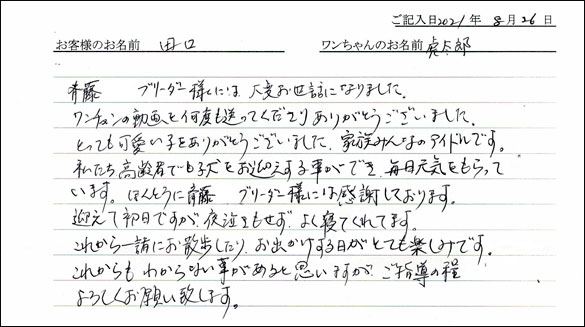 ご記入日2021年 8月26日
お客様のお名前 田口 ワンちゃんのお名前 虎太郎
斉藤 ブリーダー様には大変お世話になりました。
ワンチャンの動画を何度も送ってくださりありがとうございました。
とっても可愛い子をありがとうございました。家族みんなのアイドルです。
私たち高齢者でも子犬をお迎えする事ができ、毎日元気をもらって
います。ほんとうに斉藤 ブリーダー様には感謝しております。
迎えて初日ですが夜泣きもせず、よく寝てくれてます。
これから一諸にお散歩したり、お出かけする日がとても楽しみです。
これからもわからない事があると思いますが、ご指導の程
よろしくお願い致します。